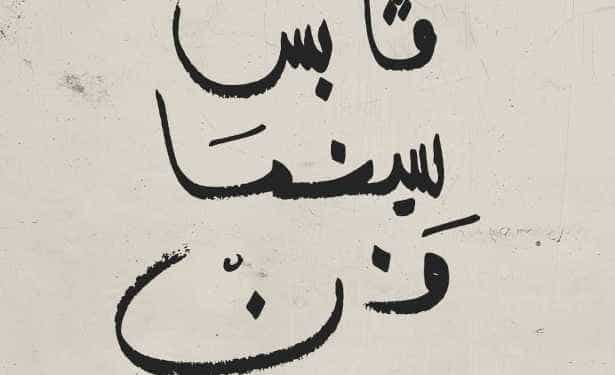 قابس
سينمَا
فَنْ